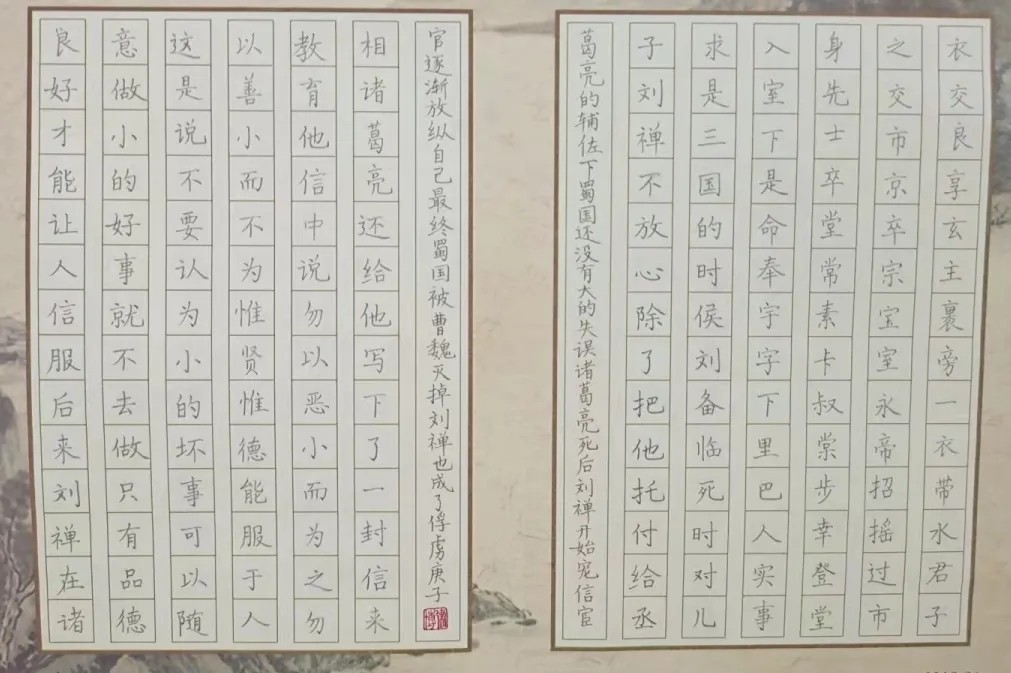 衣交良享玄主裹旁一衣带水君子
之交市京卒宗宝室永帝招摇过市
身先士卒堂常素卡叔棠步幸登堂
入室下是命奉宇字下里巴人实事
求是三国的时侯刘备临死时对儿
子刘禅不放心除了把他托付给丞
相诸葛亮还给他写下了一封信来
教育他信中说勿以恶小而为之勿
以善小而不为惟贤惟德能服于人
这是说不要认为小的坏事可以随
意做小的好事就不去做只有品德
良好才能让人信服后来刘禅在诸
葛亮的辅佐下蜀国还没有大的失误诸葛亮死后刘禅开始宠信宦
官逐渐放纵自己最终蜀国被曹魏灭掉刘禅也成了俘虏庚子